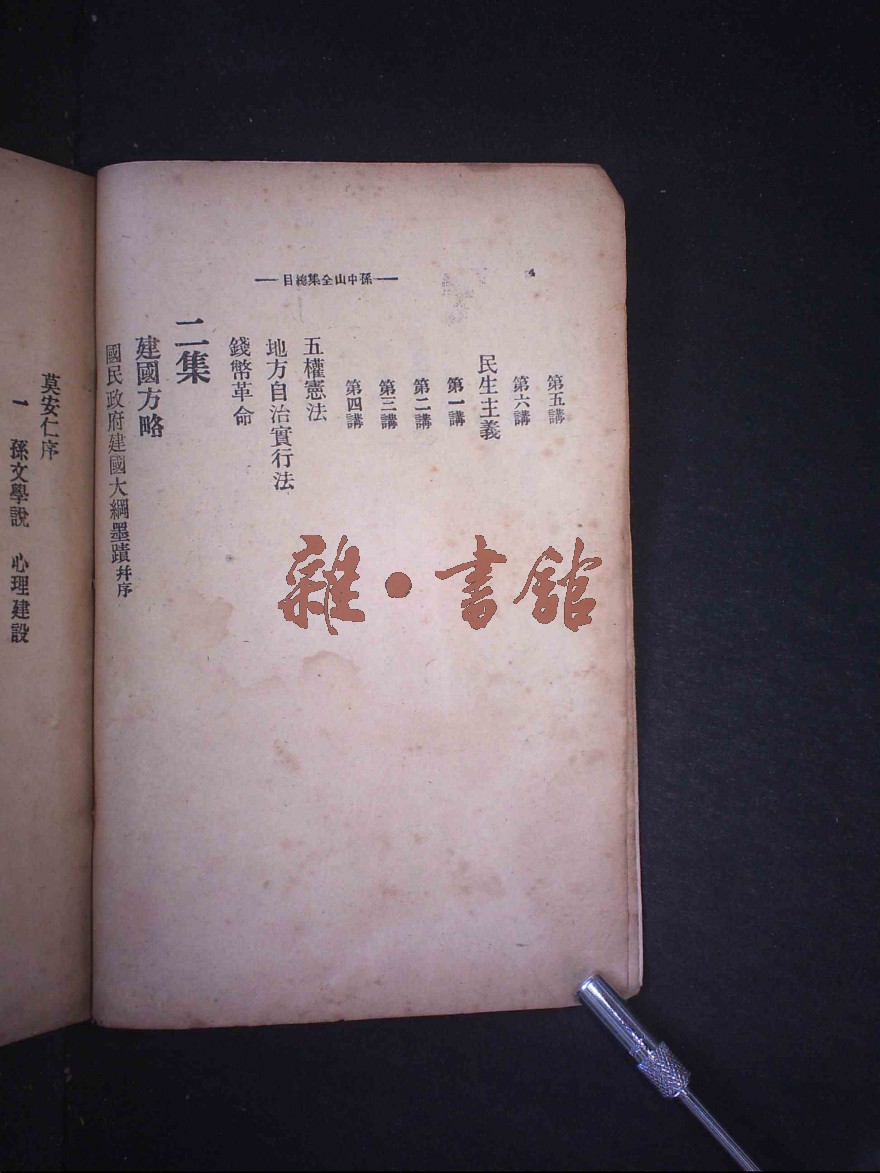 孫中山全集總目
第五講
第六講
民生主義
第一講
第二講
第三講
第四講
五權憲法
地方自治實行法
錢幣革命
二集
建國方略
國民政府建國大綱墨蹟幷序
莫安仁序
一 孫文學說 心理建設
雜·書館